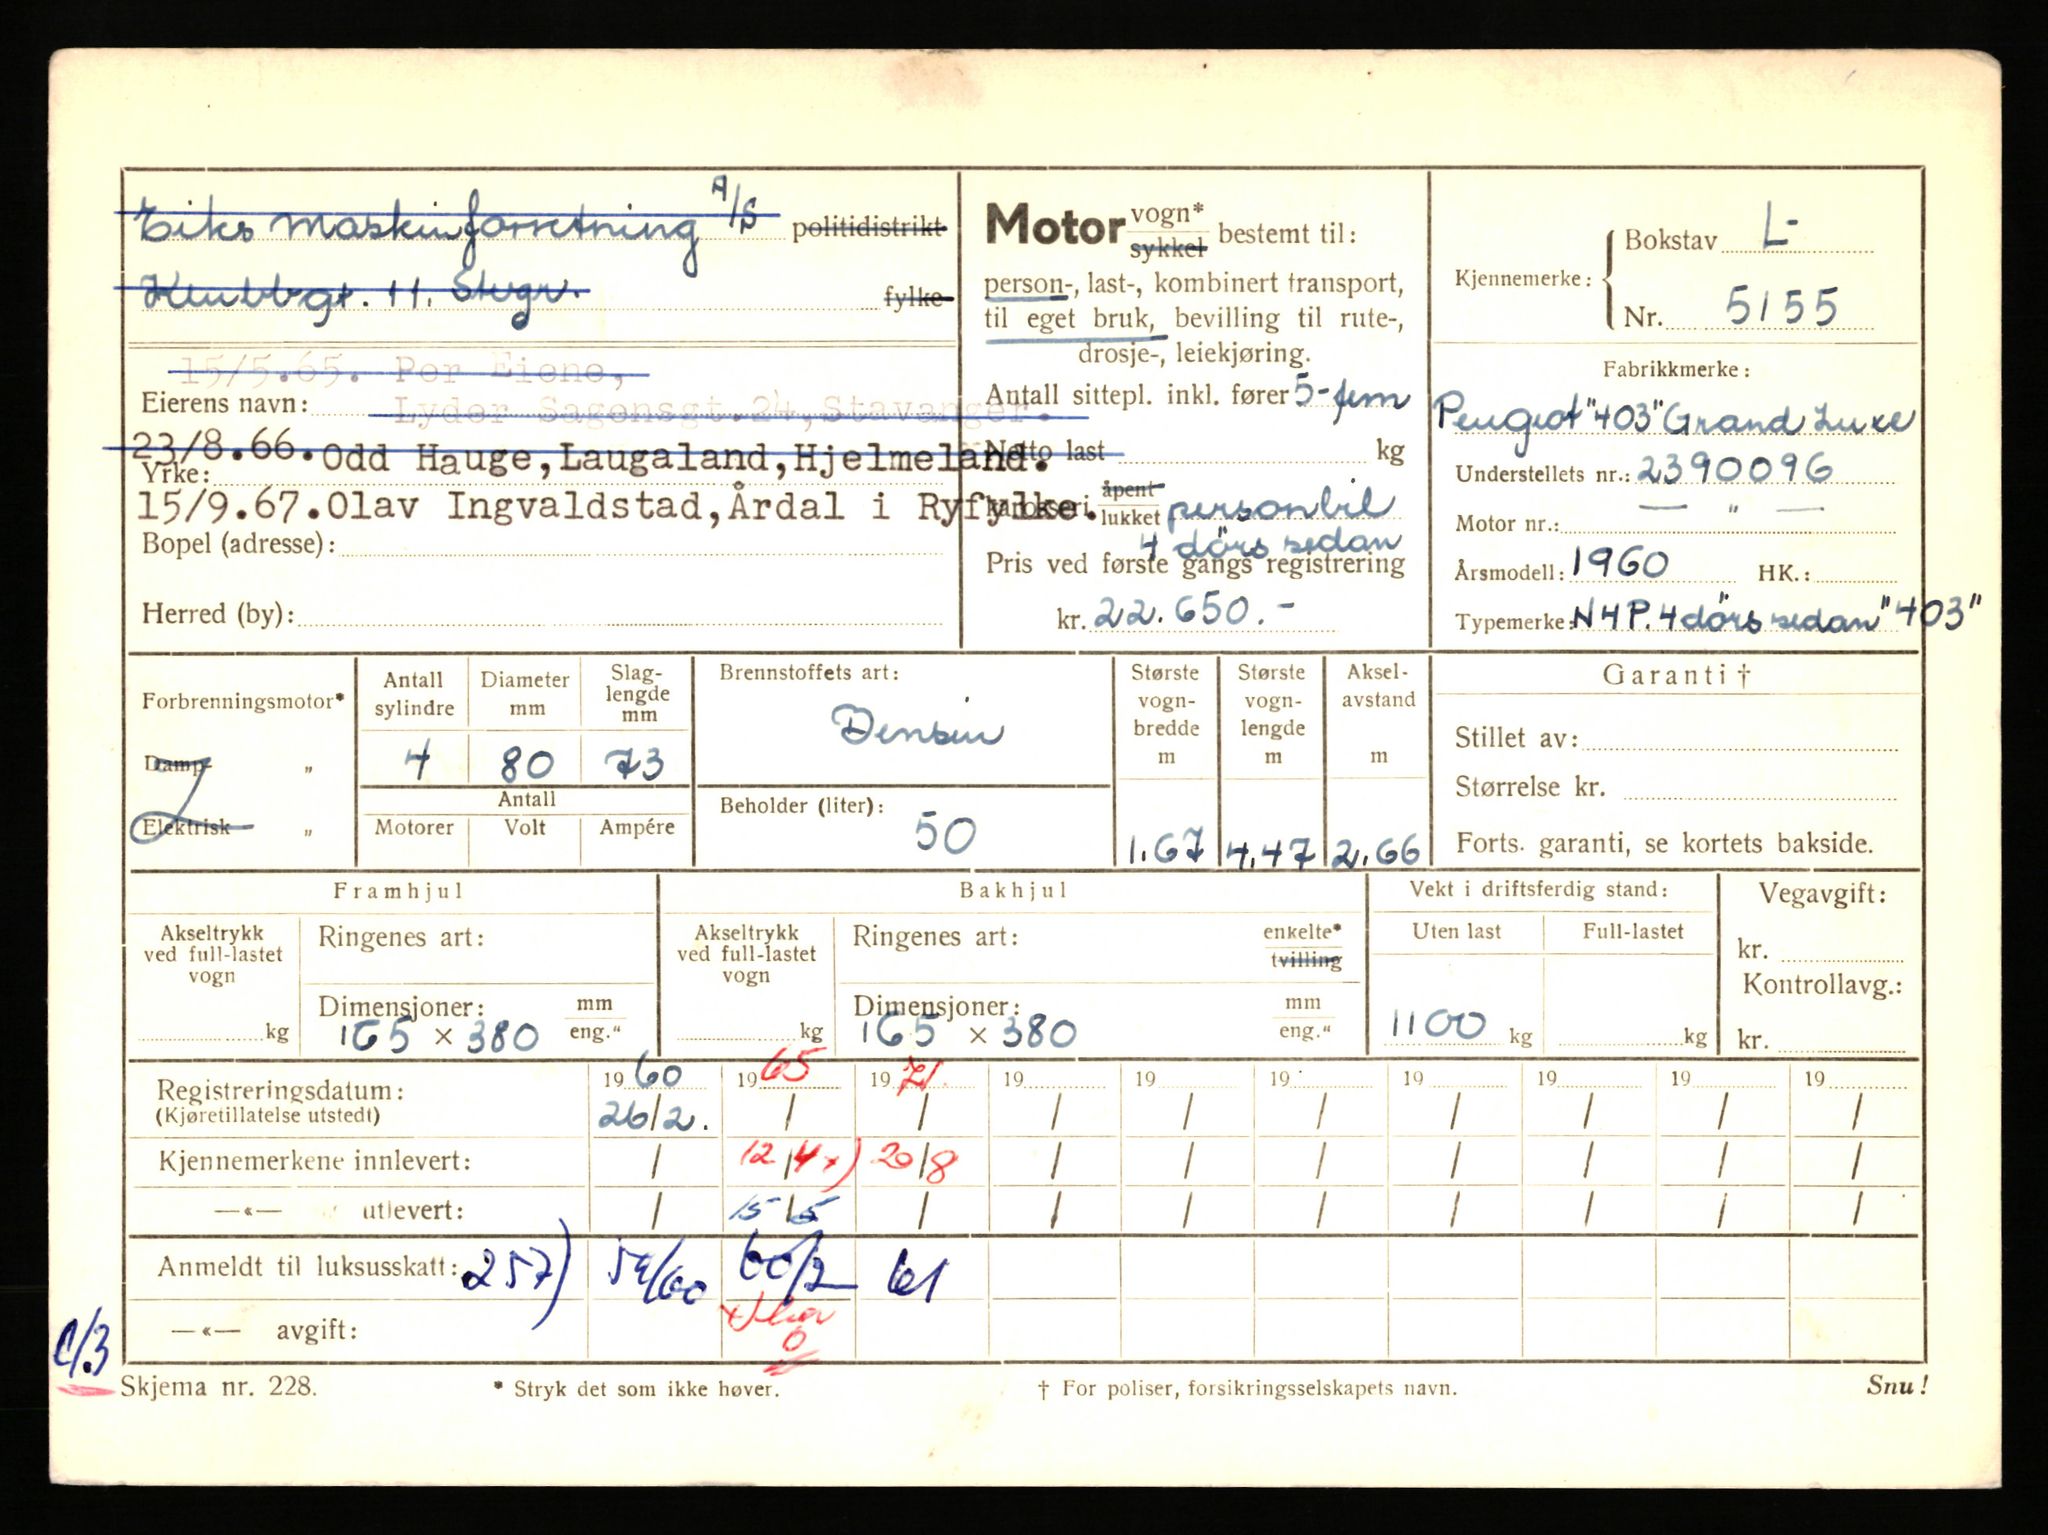 Eiks Maskinforretning A/S politidistrikt
Klubbgt. 11. Stvgr. fylke
15/5.65. Per Eiene,
Eierens navn: Lyder Sagensgt.24,Stavanger.
23/8.66.Odd Hauge,Laugaland,Hjelmeland.
Yrke:
15/9.67.Olav Ingvaldstad,Årdal i Ryfylke.
Bopel (adresse):
Herred (by):
Motor vogn* sykkel bestemt til:
person-, last-, kombinert transport,
til eget bruk, bevilling til rute-,
drosje-, leiekjøring.
Antall sittepl. inkl. fører 5-fem
Netto last kg
karosseri åpent lukket personbil
4 dörs sedan
Pris ved første gangs registrering
kr. 22.650.-
Kjennemerke: Bokstav L-
Nr. 5155
Fabrikkmerke:
Peugeot "403" Grand Luxe
Understellets nr.: 2390096
Motor nr.: — " —
Årsmodell: 1960 HK.:
Typemerke: N4P. 4 dörs sedan "403"
Forbrenningsmotor*
Damp- "
Elektrisk "
Antall sylindre Diameter mm Slag-lengde mm
4 80 73
Antall
Motorer Volt Ampére
Brennstoffets art:
Bensin
Beholder (liter):
50
Største vogn-bredde m Største vogn-lengde m Aksel-avstand m
1.67 4.47 2.66
Garanti †
Stillet av:
Størrelse kr.
Forts. garanti, se kortets bakside.
Framhjul
Akseltrykk ved full-lastet vogn
kg
Ringenes art:
Dimensjoner: mm eng."
165 × 380
Bakhjul
Akseltrykk ved full-lastet vogn
kg
Ringenes art: enkelte* tvilling
Dimensjoner: mm eng."
165 × 380
Vekt i driftsferdig stand:
Uten last Full-lastet
1100 kg kg
Vegavgift:
kr.
Kontrollavg.:
kr.
Registreringsdatum: 1960 1965 1971 19 19 19 19 19 19 19
(Kjøretillatelse utstedt) 26/2. / / / / / / / / /
Kjennemerkene innlevert: / 12/4 x) 20/8 / / / / / / /
—«— utlevert: / 15/5 / / / / / / / /
Anmeldt til luksusskatt: 257) 59/60 60/2 61
—«— avgift: 0
1/3
Skjema nr. 228. * Stryk det som ikke høver. † For poliser, forsikringsselskapets navn. Snu!